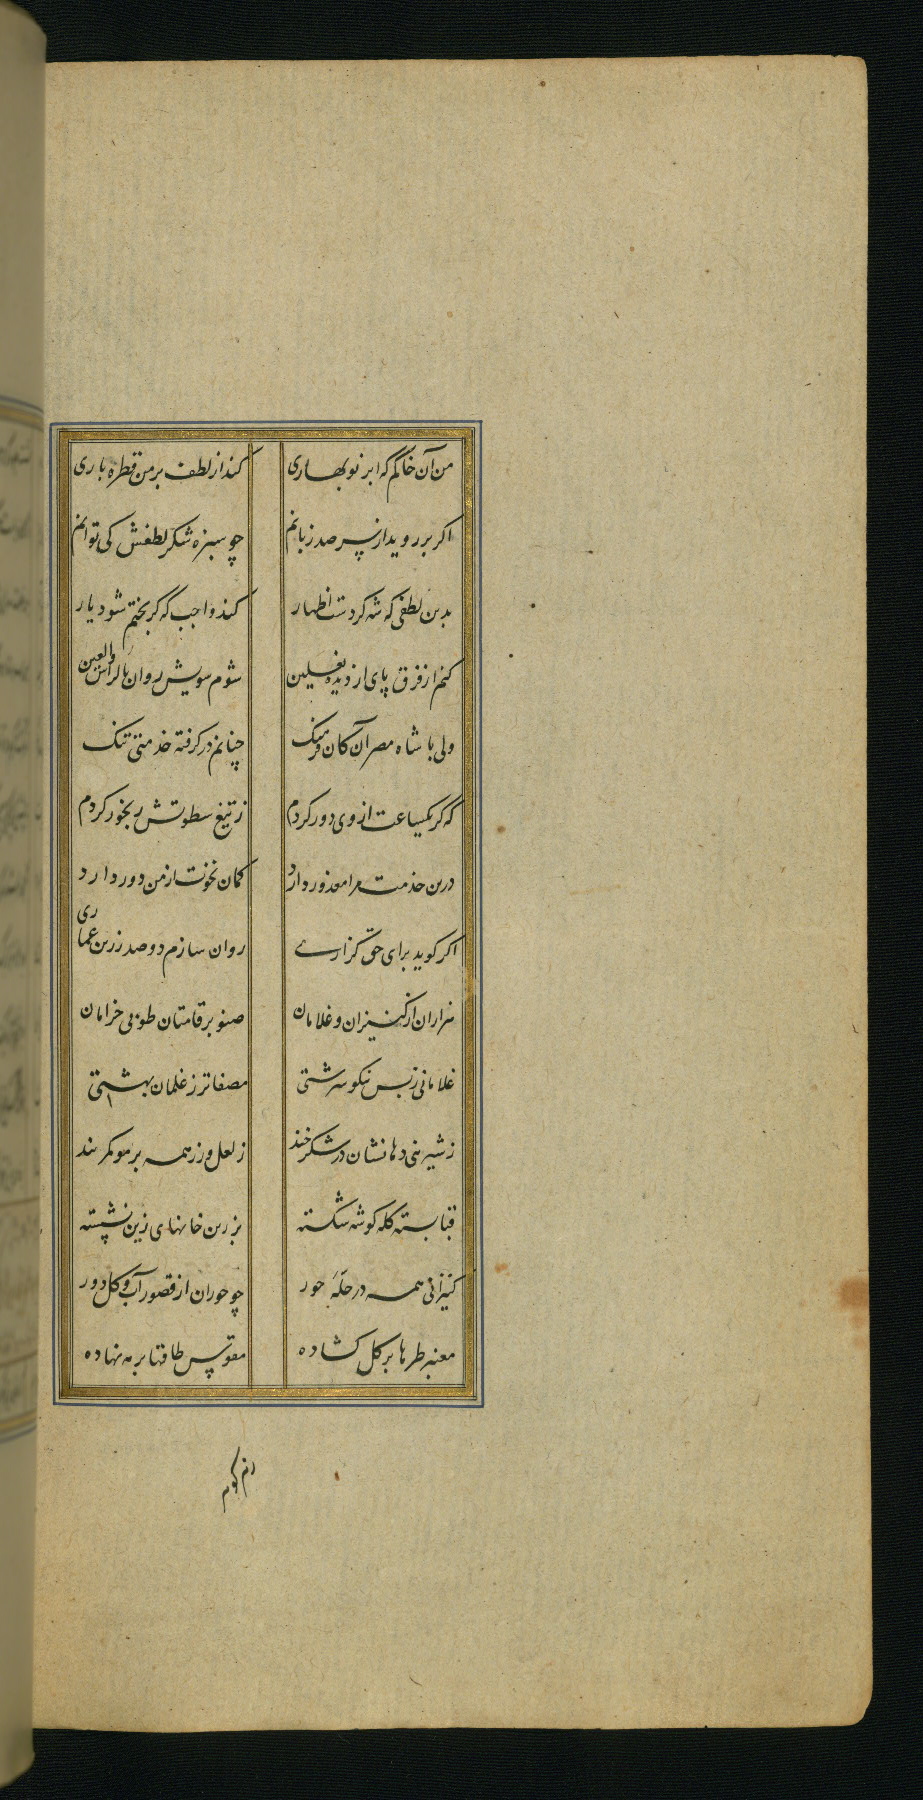 من آن خاکم که ابر نوبهاری کند از لطف بر من قطره باری
اکر بر روید از تن صد زبانم چو سبزه شکر لطفش کی توانم
بدین لطفی که شه کردست اظهار کند واجب که کر بختم شود یار
کنم از فرق پای از دیده نعلین شوم سویش روان بالراس والعین
ولی با شاه مصر آن کان فرهنک چنانم در کرفته خدمتی تنک
که کر یکساعت از وی دور کردم ز تیغ سطوتش رنجور کردم
درین خدمت مرا معذور دارد کمان نخوت از من دور دارد
اکر کوید برای حق کزاری روان سازم دو صد زرین عماری
هزاران از کنیزان و غلامان صنوبر قامتان طوبی خرامان
غلامانی ز بس نیکو سرشتی مصفاتر ز غلمان بهشتی
ز شیرینی دهانشان در شکر خند ز لعل و زر همه بر مو کمر بند
قبا بسته کله کوشه شکسته بزرین خانهای زین نشسته
کنیزانی همه در حله حور چو حوران از قصور آب و کل دور
معنبر طرها بر کل کشاده مقوس طاقها بر مه نهاده